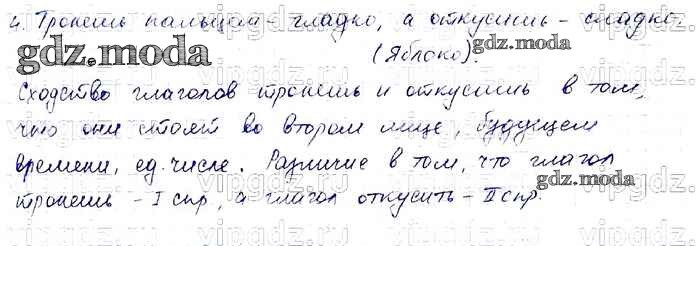 4. Тронешь пальцем - гладко, а откусишь - сладко.
(Яблоко).
gdz.moda
gdz.moda
Сходство глаголов тронешь и откусишь в том,
что они стоят во втором лице, будущем
времени, ед. числе. Различие в том, что глагол
gdz.moda
тронешь - I спр, а глагол откусить - II спр.
vipgdz.ru